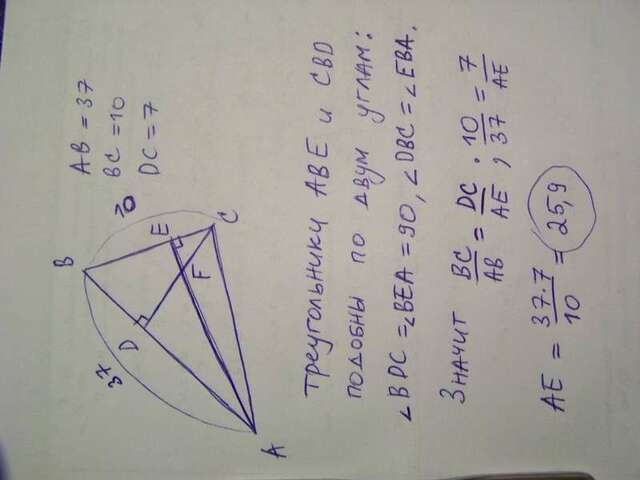 B
37
10
D
E
F
C
A
AB = 37
BC = 10
DC = 7
ТРЕУГОЛЬНИКИ ABE И CBD
ПОДОБНЫ ПО ДВУМ УГЛАМ:
∠BDC = ∠BEA = 90, ∠DBC = ∠EBA.
ЗНАЧИТ BC/AB = DC/AE ; 10/37 = 7/AE
AE = 37·7/10 = 25,9